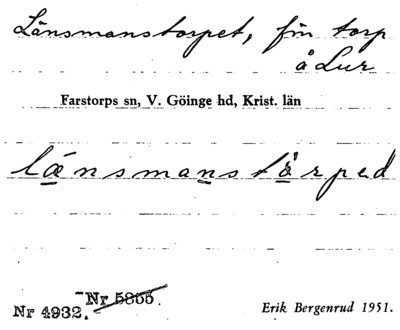 Länsmanstorpet, fin torp
å Lur
Farstorps sn, V. Göinge hd, Krist. län
lænsmanstårped
Nr 5866.
Nr 4932.
Erik Bergenrud 1951.